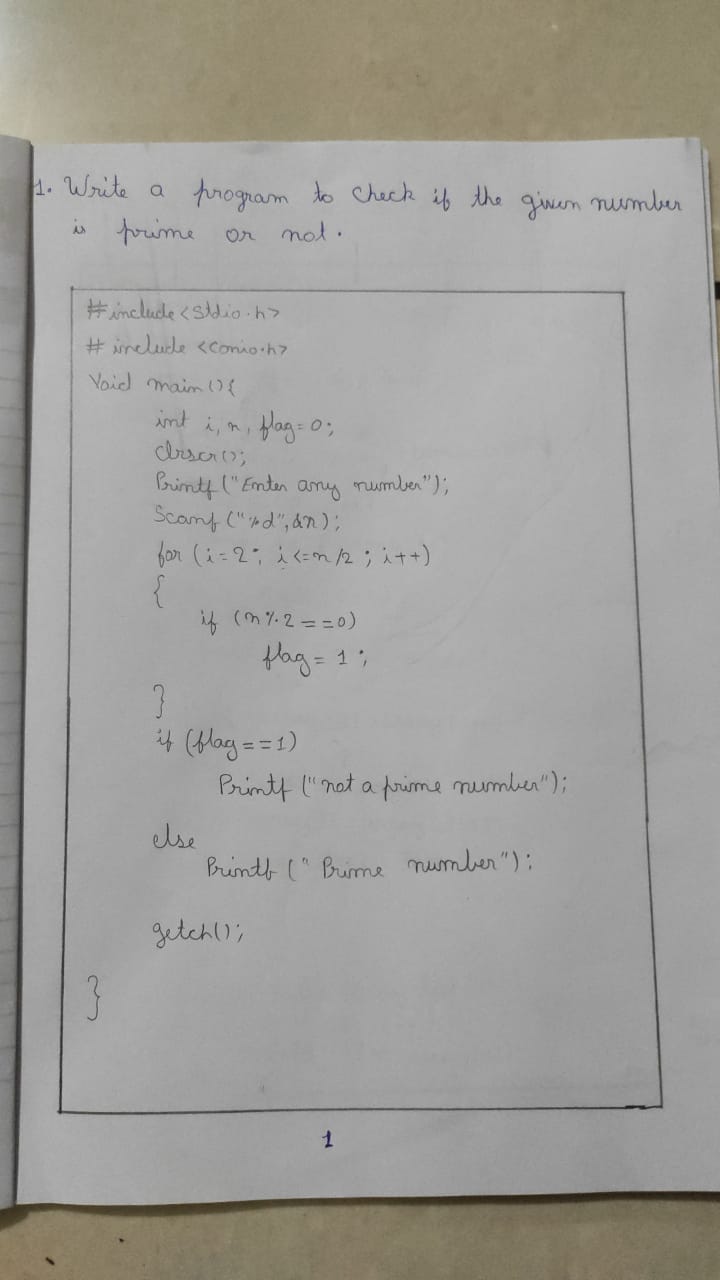 1. Write a program to check if the given number
is prime or not.
#include<Stdio.h>
# include <conio.h>
Void main(){
int i, n, flag=0;
clrscr();
Printf("Enter any number");
Scanf("%d",&n);
for (i=2; i<=n/2; i++)
{
if (n%2==0)
flag=1;
}
if (flag==1)
Printf("not a prime number");
else
Printf("Prime number");
getch();
}
1